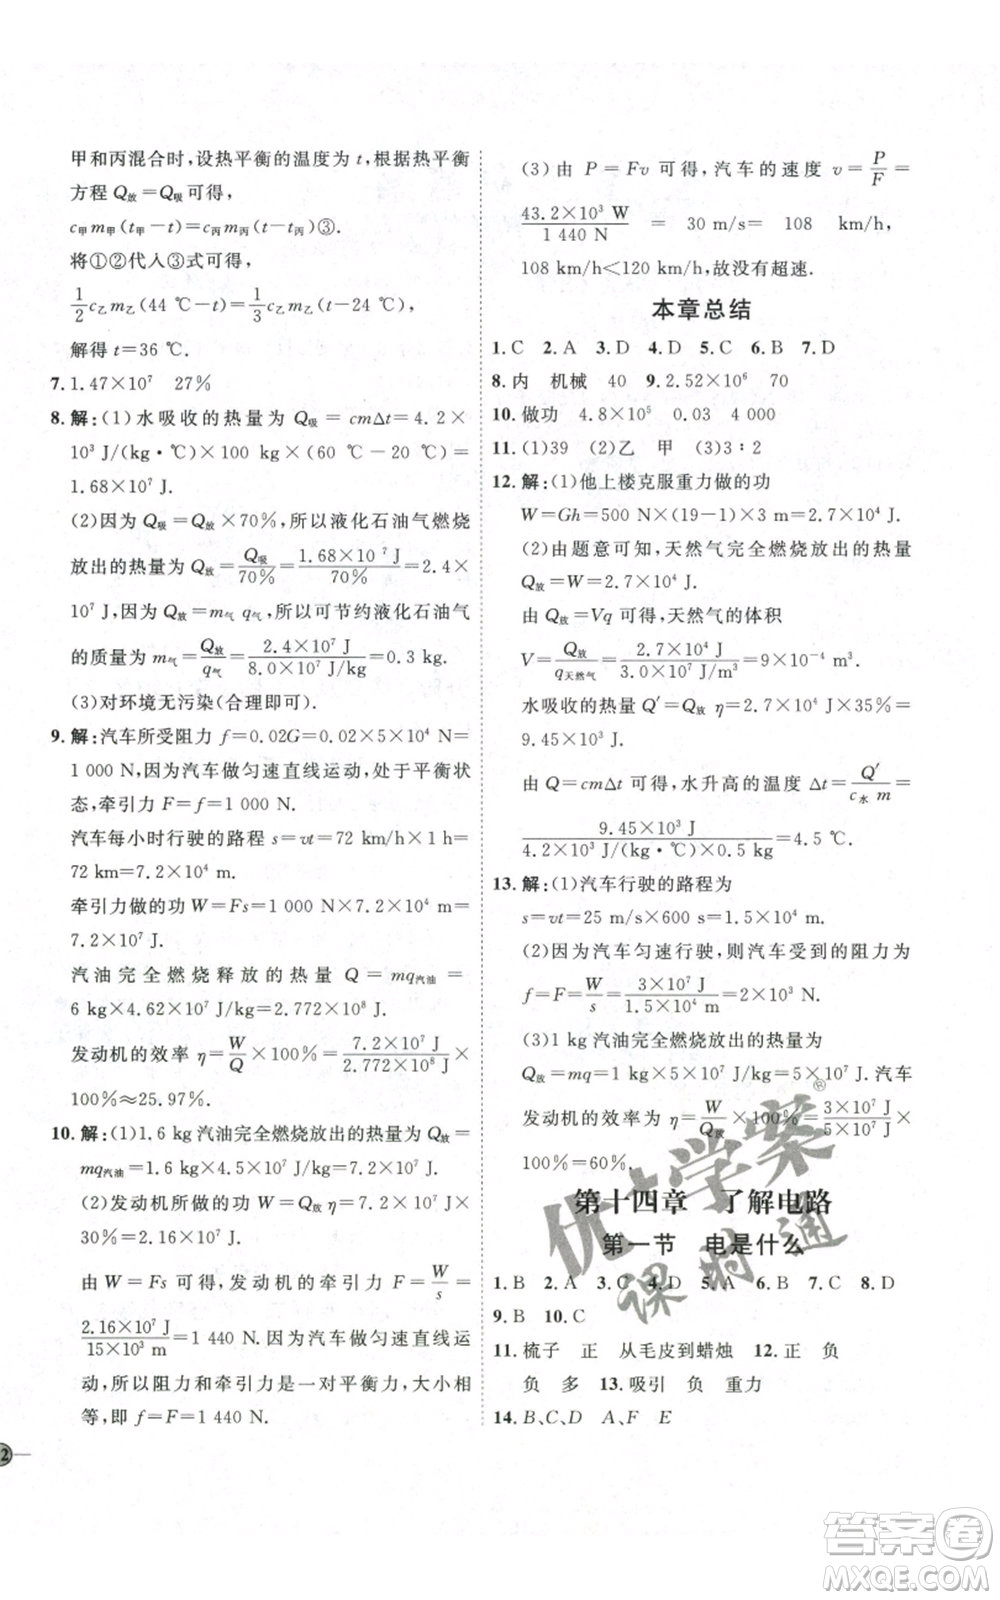 甲和丙混合时,设热平衡的温度为 t,根据热平衡
方程 Q放=Q吸可得,
c甲m甲(t甲-t)=c丙m丙(t-t丙)③.
将①②代入③式可得,
1/2 c乙m乙(44 ℃-t)=1/3 c乙m乙(t-24 ℃),
解得 t=36 ℃.
7. 1.47×10⁷ 27%
8. 解:(1)水吸收的热量为 Q吸=cmΔt=4.2×
10³ J/(kg·℃)×100 kg×(60 ℃-20 ℃)=
1.68×10⁷ J.
(2)因为 Q吸=Q放×70%,所以液化石油气燃烧
放出的热量为 Q放=Q吸/70%=1.68×10⁷ J/70%=2.4×
10⁷ J,因为 Q放=m气 q气,所以可节约液化石油气
的质量为 m气=Q放/q气=2.4×10⁷ J/8.0×10⁷ J/kg=0.3 kg.
(3)对环境无污染(合理即可).
9. 解:汽车所受阻力 f=0.02G=0.02×5×10⁴ N=
1 000 N,因为汽车做匀速直线运动,处于平衡状
态,牵引力 F=f=1 000 N.
汽车每小时行驶的路程 s=vt=72 km/h×1 h=
72 km=7.2×10⁴ m.
牵引力做的功 W=Fs=1 000 N×7.2×10⁴ m=
7.2×10⁷ J.
汽油完全燃烧释放的热量 Q=mq汽油=
6 kg×4.62×10⁷ J/kg=2.772×10⁸ J.
发动机的效率 η=W/Q×100%=7.2×10⁷ J/2.772×10⁸ J×
100%≈25.97%.
10. 解:(1)1.6 kg汽油完全燃烧放出的热量为 Q放=
mq汽油=1.6 kg×4.5×10⁷ J/kg=7.2×10⁷ J.
(2)发动机所做的功 W=Q放 η=7.2×10⁷ J×
30%=2.16×10⁷ J.
由 W=Fs 可得,发动机的牵引力 F=W/s=
2.16×10⁷ J/15×10³ m=1 440 N.因为汽车做匀速直线运
动,所以阻力和牵引力是一对平衡力,大小相
等,即 f=F=1 440 N.
2
(3)由 P=Fv 可得,汽车的速度 v=P/F=
43.2×10³ W/1 440 N=30 m/s=108 km/h,
108 km/h<120 km/h,故没有超速.
本章总结
1.C 2.A 3.D 4.D 5.C 6.B 7.D
8.内 机械 40 9.2.52×10⁶ 70
10.做功 4.8×10⁵ 0.03 4 000
11.(1)39 (2)乙 甲 (3)3∶2
12. 解:(1)他上楼克服重力做的功
W=Gh=500 N×(19-1)×3 m=2.7×10⁴ J.
(2)由题意可知,天然气完全燃烧放出的热量
Q放=W=2.7×10⁴ J.
由 Q放=Vq 可得,天然气的体积
V=Q放/q天然气=2.7×10⁴ J/3.0×10⁷ J/m³=9×10⁻⁴ m³.
水吸收的热量 Q′=Q放 η=2.7×10⁴ J×35%=
9.45×10³ J.
由 Q=cmΔt 可得,水升高的温度 Δt=Q′/c水 m=
9.45×10³ J/4.2×10³ J/(kg·℃)×0.5 kg=4.5 ℃.
13. 解:(1)汽车行驶的路程为
s=vt=25 m/s×600 s=1.5×10⁴ m.
(2)因为汽车匀速行驶,则汽车受到的阻力为
f=F=W/s=3×10⁷ J/1.5×10⁴ m=2×10³ N.
(3)1 kg汽油完全燃烧放出的热量为
Q放=mq=1 kg×5×10⁷ J/kg=5×10⁷ J.汽车
发动机的效率为 η=W/Q放×100%=3×10⁷ J/5×10⁷ J×
100%=60%.
第十四章 了解电路
第一节 电是什么
1.B 2.A 3.C 4.D 5.A 6.B 7.C 8.D
9.B 10.C
11.梳子 正 从毛皮到蜡烛 12.正 负
负 多 13.吸引 负 重力
14.B、C、D A、F E
优+学案®
课时通
答案卷
MXQE.COM